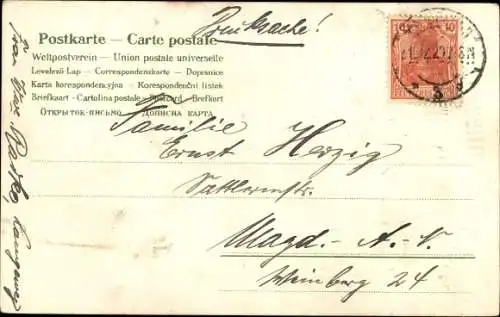 Drucksache!
Postkarte — Carte postale
Weltpostverein — Union postale universelle
Levelező-Lap — Correspondenzkarte — Dopisnice
Karta korespondencyjna — Korespondenční lístek
Briefkaart — Cartolina postale — Postcard — Brefkort
Открытое письмо — Дописна карта
Familie
Ernst Herzig
Magd. - A. N.
Weinberg 24